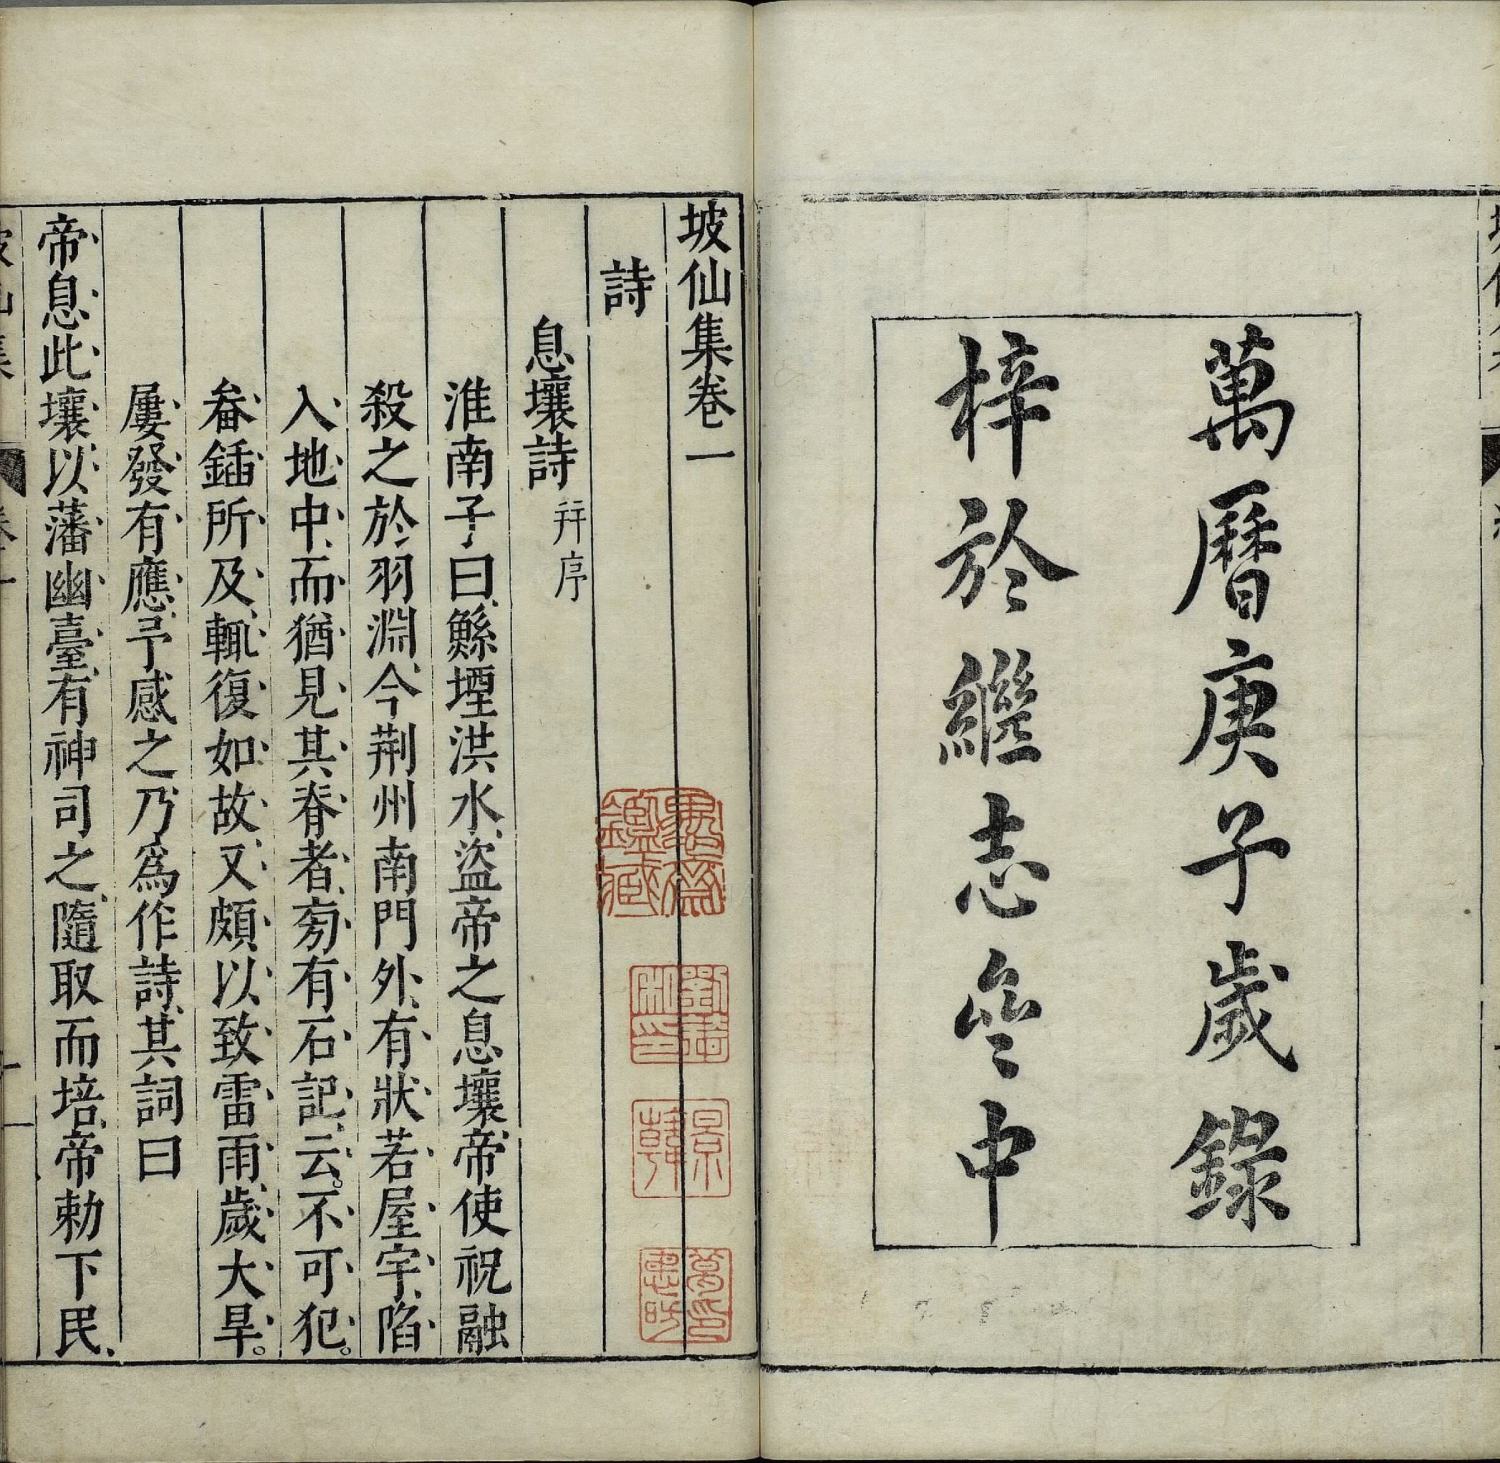 萬曆庚子歲錄
梓於繼志亝中
坡仙集卷一
詩
息壤詩 幷序
淮南子曰鯀堙洪水盜帝之息壤帝使祝融
殺之於羽淵今荆州南門外有狀若屋宇陷
入地中而猶見其脊者旁有石記云不可犯
畚鍤所及輒復如故又頗以致雷雨歲大旱
屢發有應予感之乃爲作詩其詞曰
帝息此壤以藩幽臺有神司之隨取而培帝勅下民